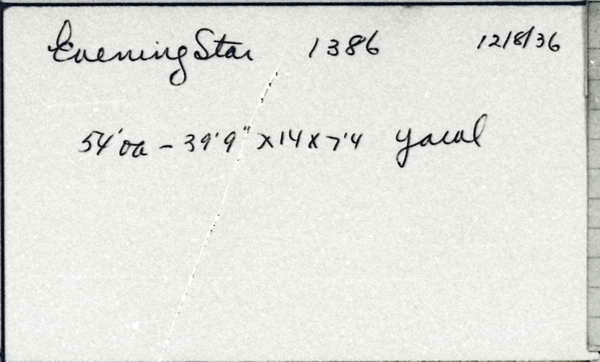 Evening Star 1386 12/8/36
54' oa - 39'9" x 14 x 7'4 yawl